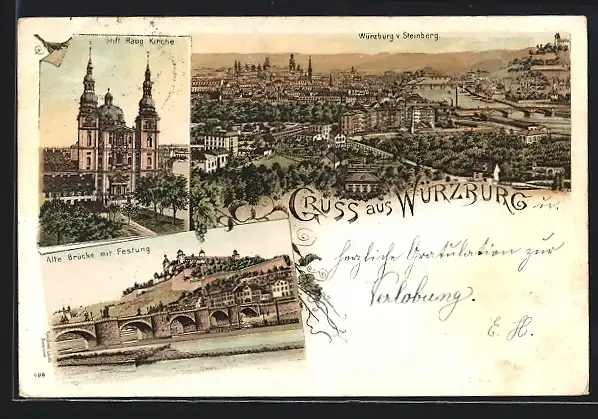 Stift Haug Kirche
Würzburg v Steinberg
Gruss aus Würzburg u.
Alte Brücke mit Festung
herzliche Gratulation zur
Verlobung.
E. H.